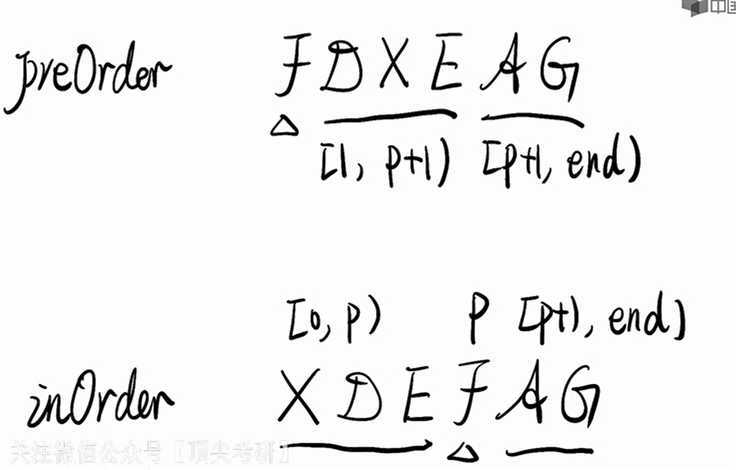 中国
preOrder FDXEAG
△
[1, p+1) [p+1, end)
[0, p) p [p+1, end]
inOrder XDEFAG
△
关注微信公众号【顶尖考研】